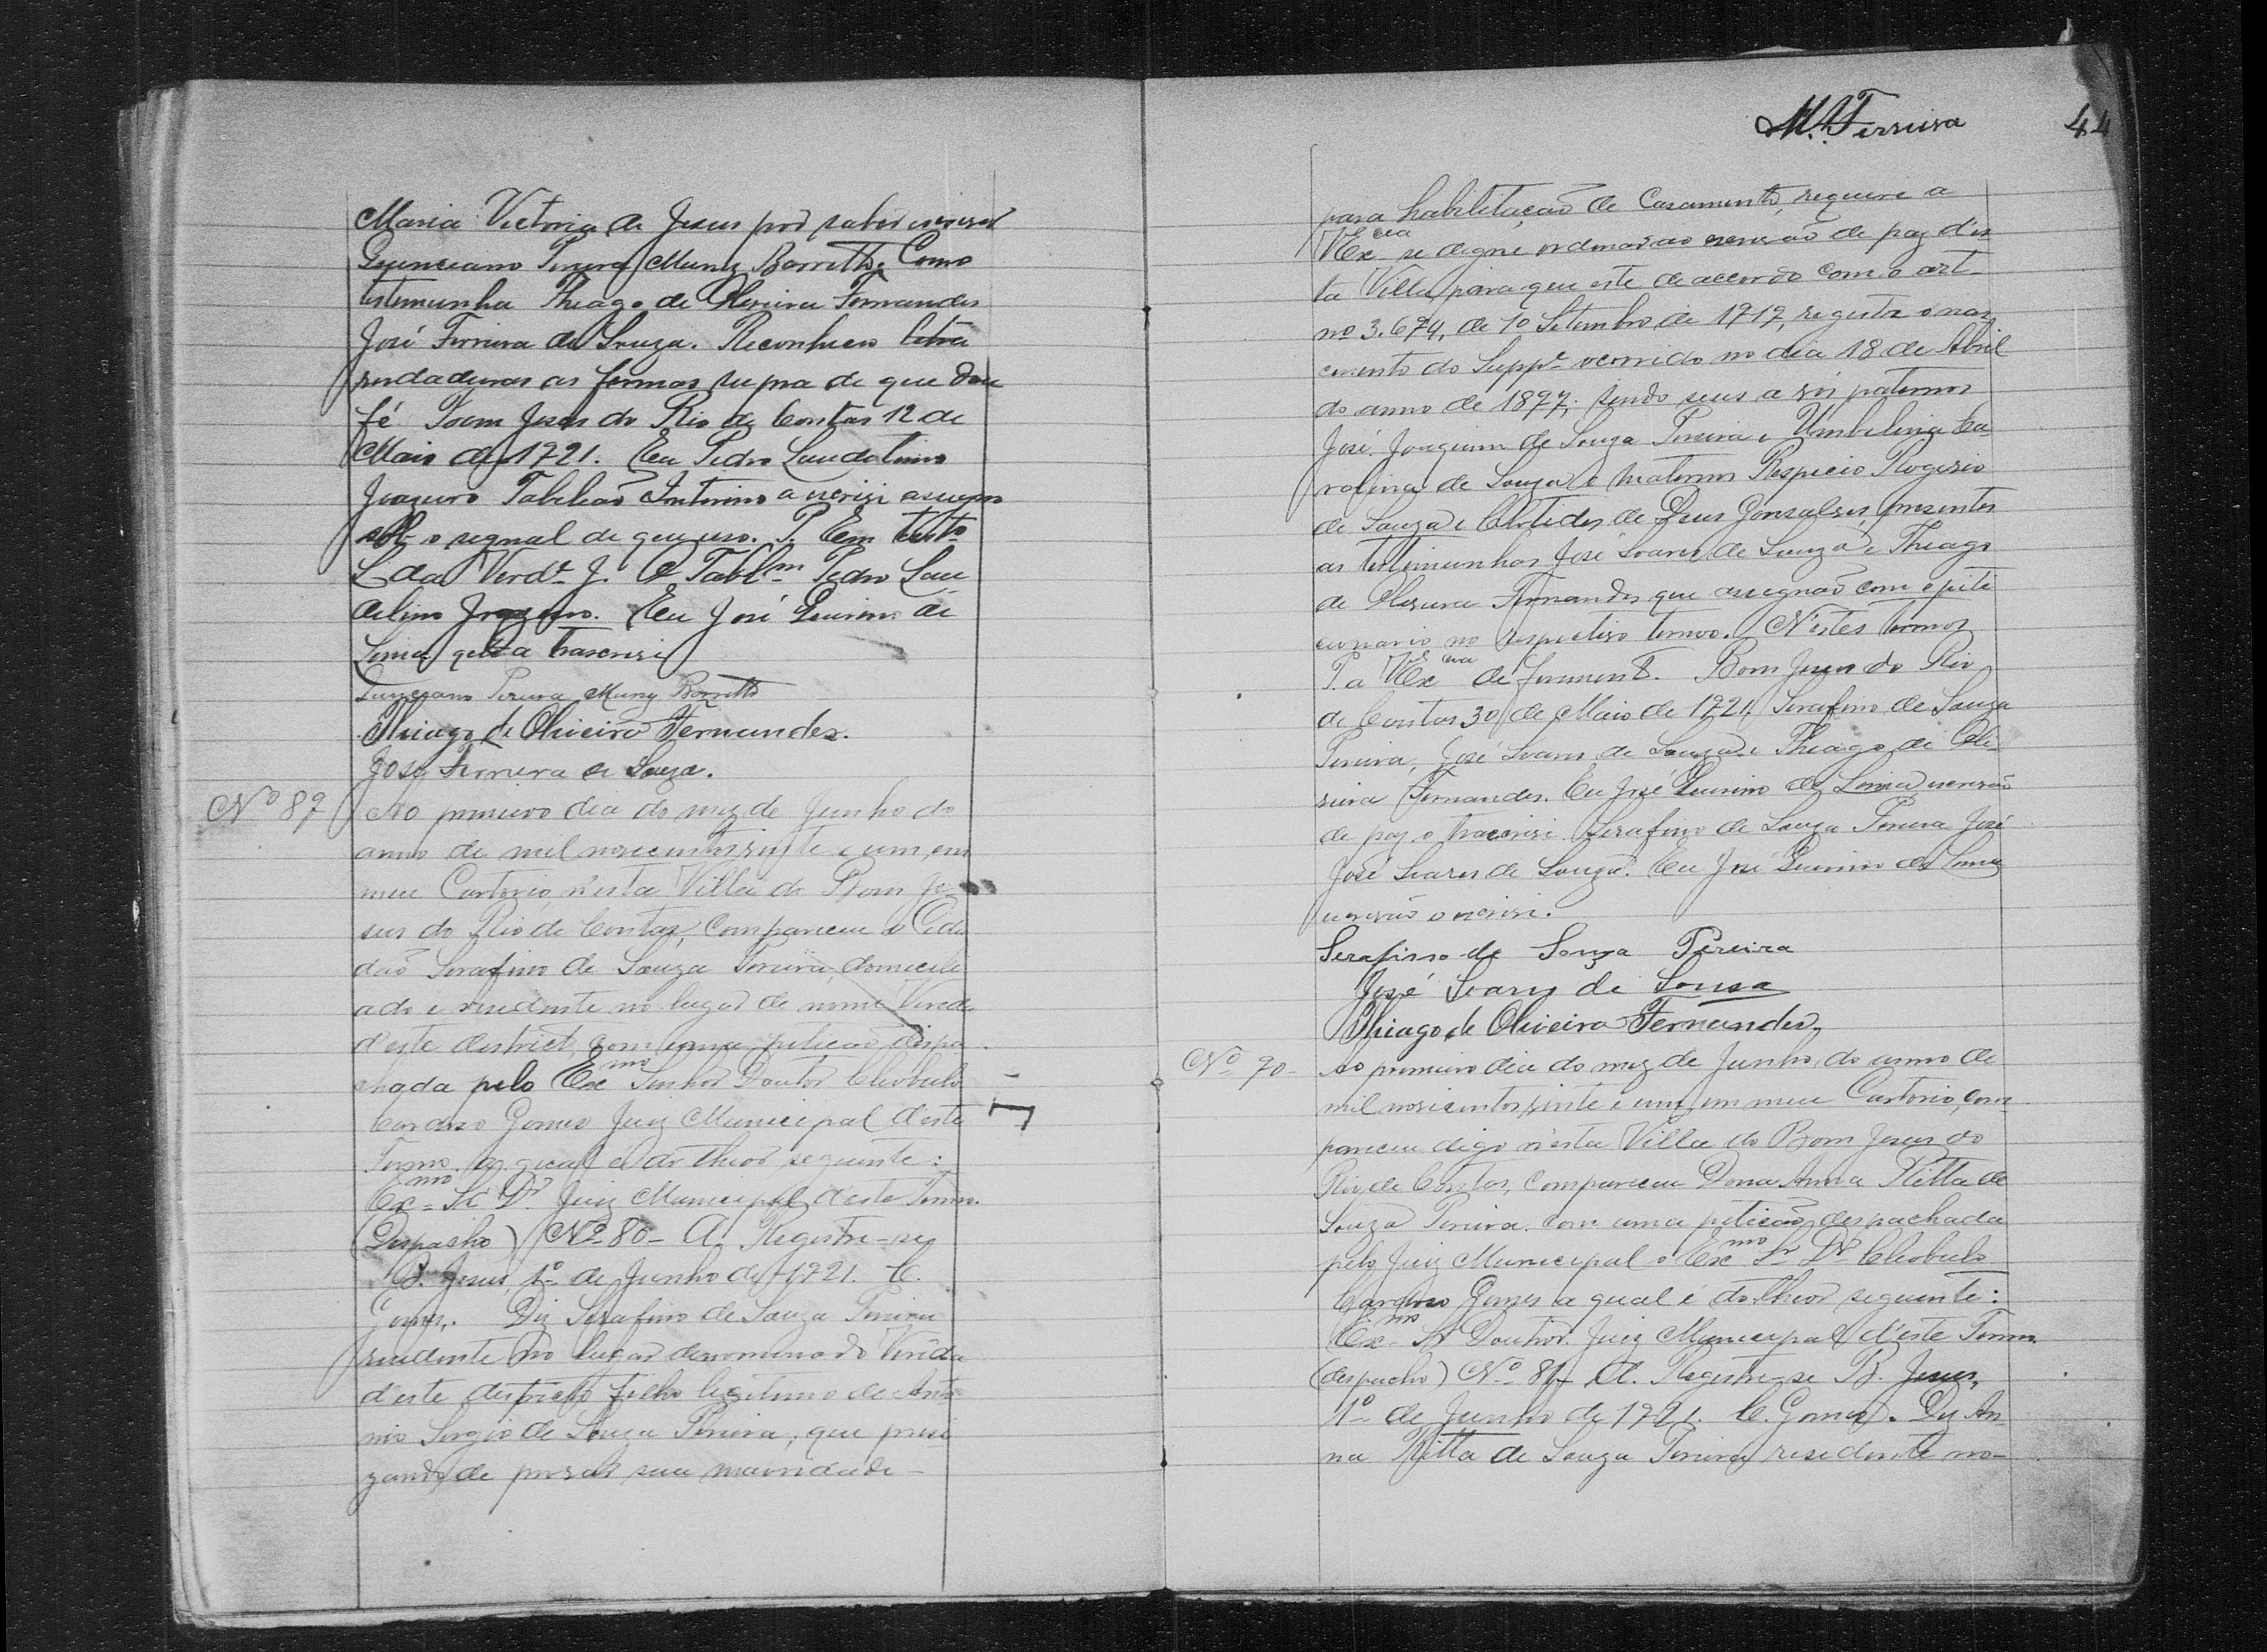 Maria Victoria de Jesus por saber escrever
Quinciano Pereira Muniz Barretto. Como
testemunha Thiago de Oliveira Fernandes
José Ferreira de Souza. Reconheco letra
verdadeiras as firmas supra de que dou
fé Bom Jesus do Rio de Contas 12 de
Maio de 1921. Eu Pedro
Tabelião Interino a escrevi
o signal de que uso. Em testo
da Verdе. O Pedro
Eu José Quirino de
Lima que a trascrevi
Quinciano Pereira Muniz Barretto
Thiago de Oliveira Fernandes.
José Ferreira de Souza.
Nº 89 Ao primeiro dia do mez de Junho do
anno de mil novecentos vinte e um, em
meu Cartorio, n'esta Villa do Bom Je-
sus do Rio de Contas, compareceu o Cida
dão Serafino de Souza Pereira, domicili
ado e residente no lugar de nome Vereda
d'este district, com uma petição despa
chada pelo Exmo Senhor Doutor Cleobulo
Cardoso Gomes Juiz Municipal d'este
Termo, a qual é do theor seguinte:
Exmo Sr. Dr. Juiz Municipal d'este Termo.
(Despacho) Nº 80 - A. Registre-se
B. Jesus, 1º de Junho de 1921. C.
Gomes. Diz Serafino de Souza Pereira
residente no lugar denominado Vereda
d'este districto, filho legitimo de Anto
nio Sergio de Souza Pereira, que preci
zando de provar sua maioridade
M. Ferreira 44
para habilitação de Casamento, requere a
V Excia se digne ordenar ao escrivão de paz d'es
ta Villa, para que este de accordo com o art-
nº 3.674, de 10 Setembro de 1919, registe o nas
cimento do Suppe ocorrido no dia 18 de Abril
do anno de 1897; sendo seus avós paternos
José Joaquim de Souza Pereira e Umbelina Ca-
rolina de Souza e maternos Respicio Rogerio
de Souza e Clotides de Deus Gonsalves, presentes
as testimunhas José Soares de Souza e Thiago
de Oliveira Fernandes que assignaõ com o peti
cionario no respectivo termo. N'estes termos
P. a V Excia deferiment. Bom Jesus do Rio
de Contas 30 de Maio de 1921. Serafino de Souza
Pereira, José Soares de Souza e Thiago de Oli-
veira Fernandes. Eu José Quirino de Lima escrivão
de paz o trascrevi. Serafino de Souza Pereira José
José Soares de Souza. Eu José Quirino de Lima
escrivão o escrevi.
Serafino de Souza Pereira
José Soares de Sousa
Thiago de Oliveira Fernandes.
Nº 90- Ao primeiro dia do mez de Junho do anno de
mil novicentos vinte e um, em meu Cartorio, com-
pareceu digo n'esta Villa do Bom Jesus do
Rio de Contas, compareceu Dona Anna Ritta de
Souza Pereira, com uma petição despachada
pelo Juiz Municipal o Exmo Sr Dr Cleobulo
Cardoso Gomes a qual é do theor seguinte:
Exmo Sr Doutor Juiz Municipal d'este Termo.
(despacho) Nº 81- A. Registre-se B. Jesus,
1º de Junho de 1921. C. Gomes. Diz An
na Ritta de Souza Pereira residente no-